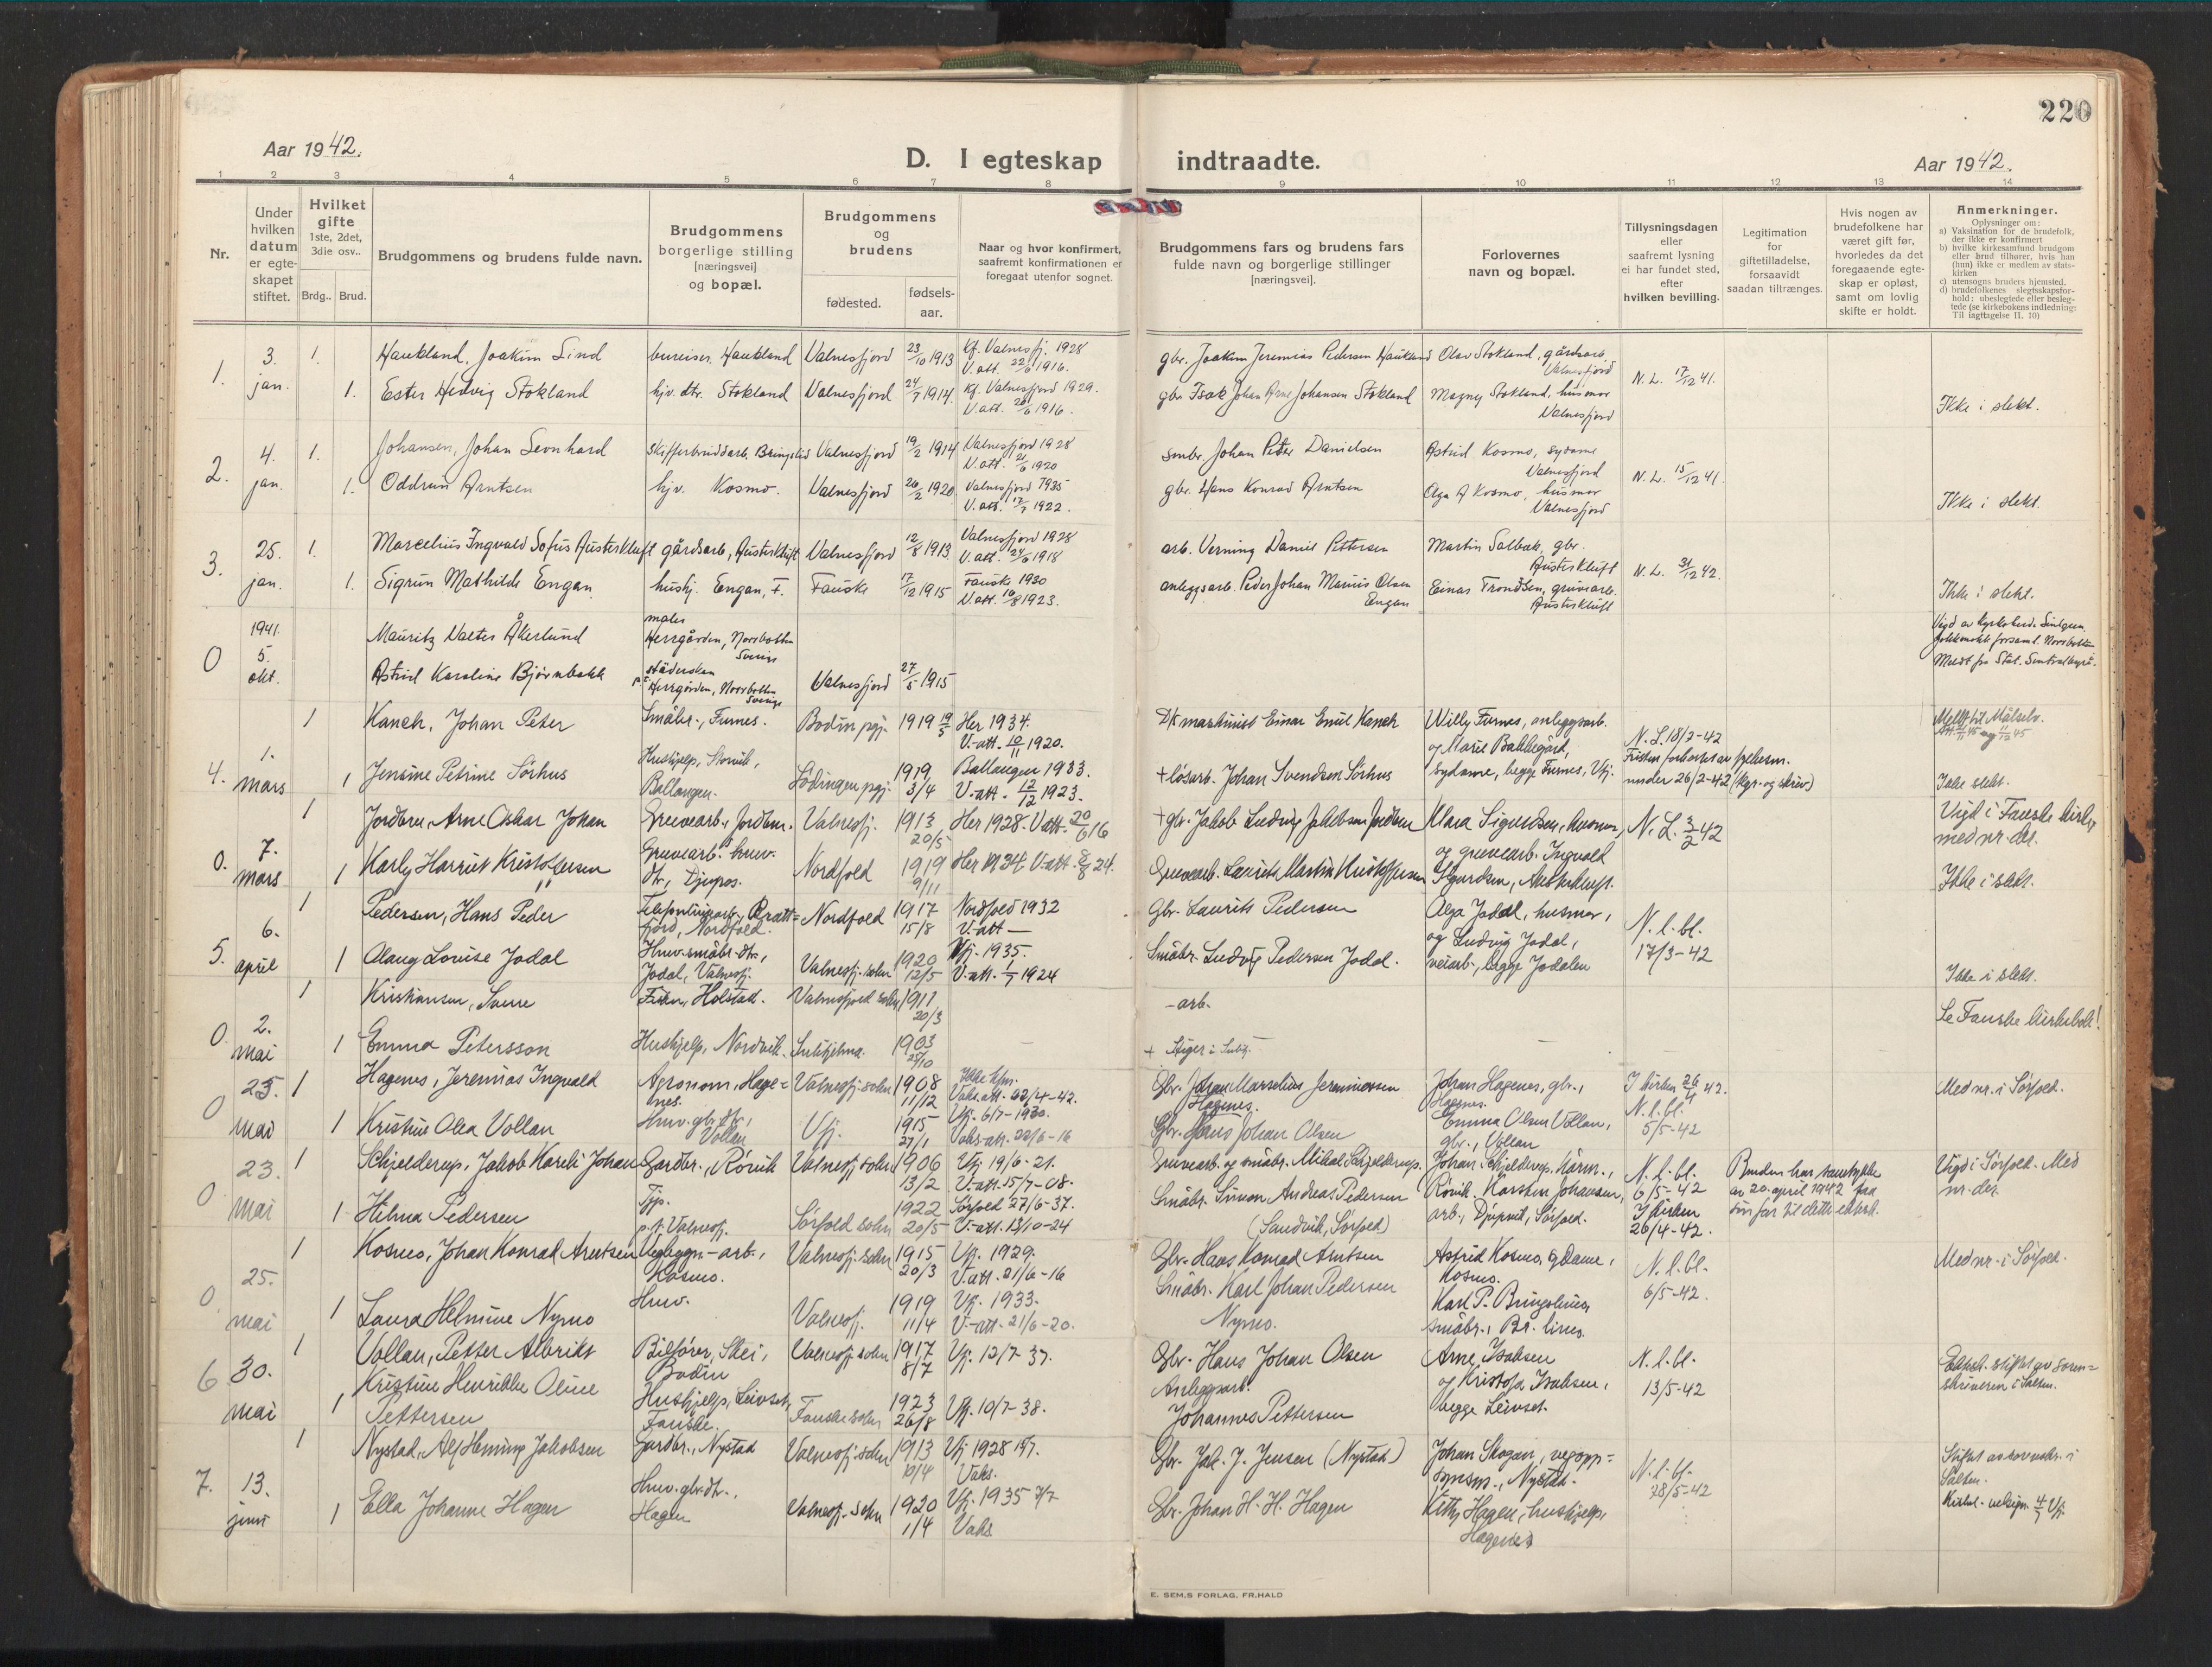 220
Aar 1942.
D. I egteskap indtraadte.
Aar 1942.
1 2 3 4 5 6 7 8 9 10 11 12 13 14
Nr.
Under hvilken datum er egteskapet stiftet.
Hvilket gifte 1ste, 2det, 3die osv..
Brdg.. Brud.
Brudgommens og brudens fulde navn.
Brudgommens borgerlige stilling [næringsvei] og bopæl.
Brudgommens og brudens
fødested.
fødsels-aar.
Naar og hvor konfirmert, saafremt konfirmationen er foregaat utenfor sognet.
Brudgommens fars og brudens fars fulde navn og borgerlige stillinger [næringsvei].
Forlovernes navn og bopæl.
Tillysningsdagen eller saafremt lysning ei har fundet sted, efter hvilken bevilling.
Legitimation for giftetilladelse, forsaavidt saadan tiltrænges.
Hvis nogen av brudefolkene har været gift før, hvorledes da det foregaaende egteskap er opløst, samt om lovlig skifte er holdt.
Anmerkninger.
Oplysninger om:
a) Vaksination for de brudefolk, der ikke er konfirmert
b) hvilke kirkesamfund brudgom eller brud tilhører, hvis han (hun) ikke er medlem av statskirken
c) utensogns bruders hjemsted.
d) brudefolkenes slegtsskapsforhold: ubeslegtede eller beslegtede (se kirkebokens indledning: Til iagttagelse II. 10)
1. 3. jan. 1. Haukland, Joakim Lind bureiser. Haukland Valnesfjord 23/10 1913 Kf. Valnesfj. 1928 V. att. 22/6 1916. gbr. Joakim Jeremias Pedersen Haukland Olav Stokland, gårdsarb. Valnesfjord N. L. 17/12 41.
1. Ester Hedvig Stokland hjv. dtr. Stokland Valnesfjord 24/7 1914. Kf. Valnesfjord 1929. V. att. 20/6 1916. gbr. Isak Johan Arne Johansen Stokland Magny Stokland, husmor Valnesfjord Ikke i slekt.
2. 4. jan. 1. Johansen, Johan Leonhard Skifferbruddsarb. Bringslid Valnesfjord 19/2 1914 Valnesfjord 1928 V. att. 21/6 1920 smbr. Johan Peter Danielsen Astrid Kosmo, sydame Valnesfjord N. L. 15/12 41.
1. Oddrun Arntsen hjv. Kosmo. Valnesfjord 26/2 1920 Valnesfjord 1935 V. att. 17/7 1922. gbr. Hans Konrad Arntsen Olga A Kosmo, husmor Valnesfjord Ikke i slekt.
3. 25. jan. 1. Marcelius Ingvald Sofus Austerkluft gårdsarb, Austerkluft Valnesfjord 12/8 1913 Valnesfjord 1928 V. att. 24/6 1918 arb. Verning Daniel Pettersen Martin Salbak, gbr. Austerkluft N. L. 31/12 42.
1. Sigrun Mathilde Engan. hushj. Engan, F. Fauske 17/12 1915 Fauske 1930 V. att. 10/8 1923. anleggsarb. Peder Johan Marius Olsen Engan Einar Trondsen, gruvearb. Austerkluft Ikke i slekt.
0 1941. 5. okt. Mauritz Valter Åkerlund maler Herrgården, Norrbotten Sverige
Astrid Karoline Björnbakk städerskan Herrgården, Norrbotten Sverige Valnesfjord 27/5 1915 Meldt fra Stat. Sentralbyrå.
4. 1. mars 1 Kanck, Johan Peter Småbr., Furnes. Bodin pgj. 1919 19/5 Her 1934. V.-att. 10/11 1920. D/s maskinist Einar Emil Kanck Willy Furnes, anleggsarb. og Marie Bakkegård, sydame, begge Furnes, Vfj. N. L. 18/2-42
1 Jensine Petrine Sörhus Hushjelp, Storvik, Ballangen. Lödingen pgj. 1919 3/4 Ballangen 1933. V-att. 12/12 1923. + lösarb. Johan Svendsen Sörhus under 26/2-42 Ikke slekt.
0. 7. mars 1 Jordbru, Arne Oskar Johan Gruvearb., Jordbru. Valnesfj. 1913 20/5 Her 1928. V.att. 20/6 16 + gbr. Jakob Ludvig Jakobsen Jordbru Klara Sigurdsen, husmor, N. L. 3/2 42 Vigd i Fauske kirke, med nr. der.
1 Karly Harriet Kristoffersen Gruvearb. huv. dtr, Djupos. Nordfold 1919 9/11 Her 1934. V-att. 8/8 24. Gruvearb. Laurits Martin Kristoffersen og gruvearb. Ingvald Sigurdsen, Austerkluft. Ikke i slekt.
5. 6. april 1 Pedersen, Hans Peder Nordfold. Nordfold 1917 15/8 Nordfold 1932 V.-att — Gbr. Laurits Pedersen Olga Jodal, husmor, og Ludvig Jodal, veiarb., begge Jodalen N. l. bl. 17/3-42
1 Olaug Lovise Jodal Huv. småbr. dtr., Jodal, Valnesfj. Valnesfj. sokn 1920 12/5 Vfj. 1935. V-att. 1/7 1924 Småbr. Ludvig Pedersen Jodal. Ikke i slekt.
0 2. mai 1 Kristiansen, Sverre Fisker, Holstad. Valnesfjord sokn 1911 20/3 - arb. — Se Fauske kirkebok!
1 Emma Petersson Hushjelp, Nordvik. Sulitjelma. 1903 25/10 — + Stiger i Sulitj. —
0 25. mai 1 Hagenes, Jeremias Ingvald Agronom, Hagenes. Valnesfj. sokn 1908 11/12 Ikke kfm. Vaks. att. 22/4-42. Gbr. Johan Marselius Jeremiassen Hagenes. Johan Hagenes, gbr., Hagenes. I kirken 26/4 42. N. l. bl. 5/5-42 Med nr. i Sörfold.
1 Kristine Olea Vollan Huv. gbr. dtr., Vollan Vfj. 1915 27/1 Vfj. 6/7-1930. Vaks.-att. 22/6-16 Gbr. Hans Johan Olsen Emma Olsen Vollan, gbr., Vollan
0 23. mai 1 Schjelderup, Jakob Kareli Johan Gardbr., Rörvik Valnesfj. sokn 1906 13/2 Vfj 19/6-21. V.-att. 15/7-08. Gruvearb. og småbr. Mikal Schjelderup. Johan Schjelderup, Rörvik. Karsten Johansen, arb., Djupvik, Sörfold. N. l. bl. 6/5-42 I kirken 26/4-42. Bruden har samtykke av 20. april 1942 fra sin far til dette ektesk. Vigd i Sörfold. Med nr. der.
1 Hilma Pedersen Tjp. p. t. Valnesfj. Sörfold sokn 1922 20/5 Sörfold 27/6-37. V.-att. 13/10-24 Småbr. Simon Andreas Pedersen (Sandvik, Sörfold)
0 25. mai 1 Kosmo, Johan Konrad Arntsen Vegbygn.-arb., Kosmo. Valnesfj. sokn 1915 20/3 Vfj. 1929. V.att. 21/6-16 Gbr. Hans Konrad Arntsen Astrid Kosmo, sydame, Kosmo. N. l. bl. 6/5-42. Med nr. i Sörfold.
1 Laura Helmine Nymo Huv. Valnesfj. 1919 11/4 Vfj. 1933. V.-att. 21/6-20. Småbr. Karl Johan Pedersen Nymo. Karl P. Bringslimo, småbr., Br. limo.
6 30. mai 1 Vollan, Petter Albrikt Bilförer, Skei, Bodin Valnesfj. sokn 1917 8/7 Vfj. 12/7 37. Gbr. Hans Johan Olsen Arne Isaksen og Kristofa Isaksen, begge Leivset. N. l. bl. 13/5-42 Ektesk. stiftet av sorenskriveren i Salten.
1 Kristine Henrikke Oline Pettersen Hushjelp, Leivset, Fauske. Fauske sokn 1923 26/8 Vfj. 10/7-38. Anleggsarb. Johannes Pettersen
7. 13. juni 1 Nystad, Alf Heming Jakobsen Gardbr., Nystad Valnesfj. sokn 1913 19/4 Vfj 1928 1/7. Vaks. Gbr. Jak. J. Jensen (Nystad) Johan Skogan, vegoppsynsm., Nystad. N. l. bl. 28/5-42 Stiftet av sorenskr. i Salten.
1 Ella Johanne Hagen Huv. gbr. dtr., Hagen Valnesfj. sokn 1920 1/4 Vfj. 1935 7/7 Vaks Gbr. Johan H. H. Hagen Kitty Hagen, hushjelp, Hagenes Kirkel. velsign. 4/7 Vfj.
E. SEM,S FORLAG, FR.HALD